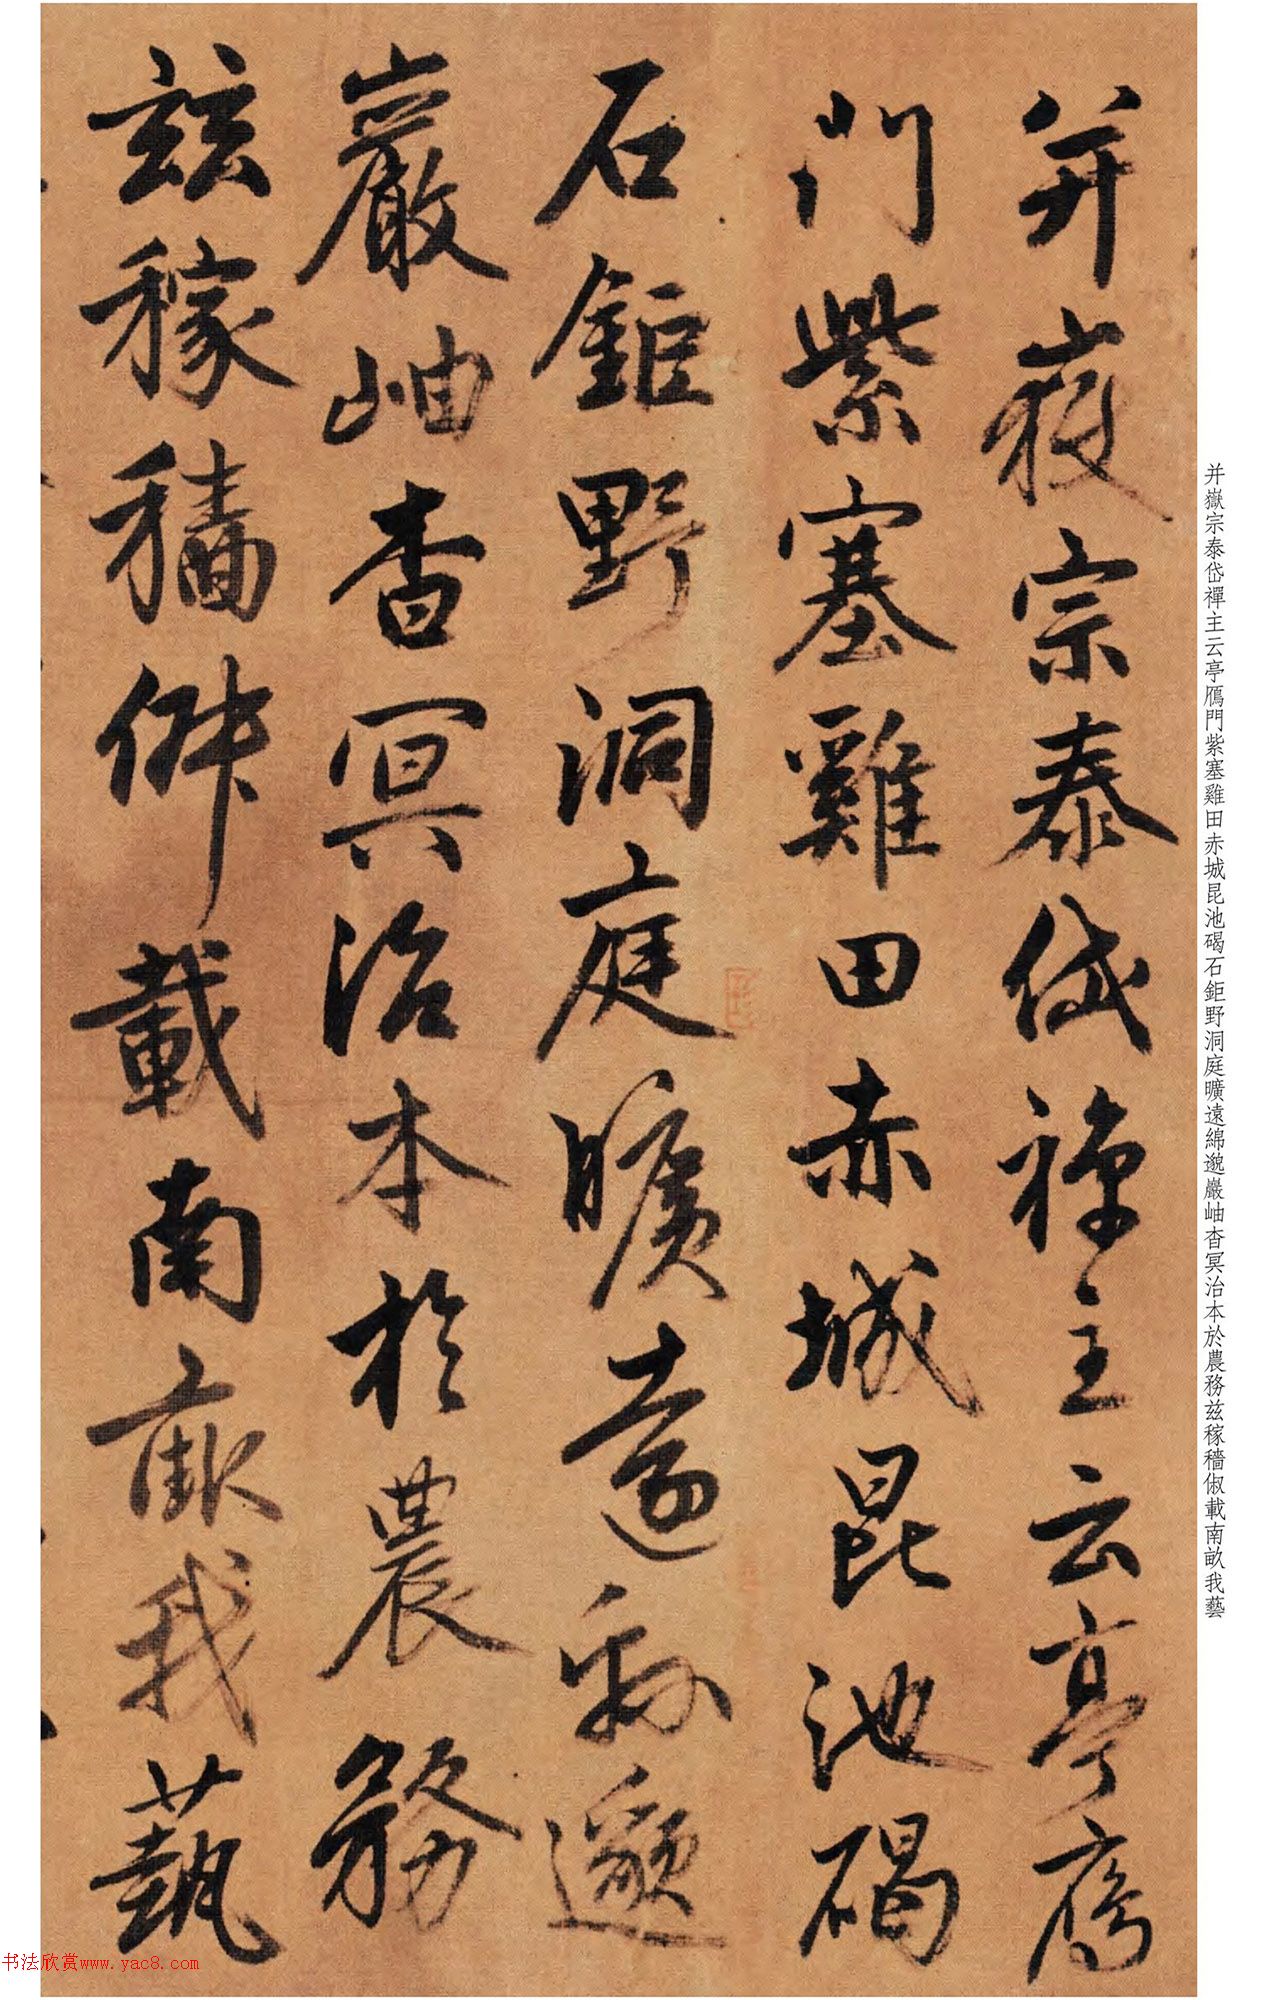 并嶽宗泰岱禪主云亭鴈
門紫塞雞田赤城昆池碣
石鉅野洞庭曠遠綿邈
巖岫杳冥治本於農務
茲稼穡俶載南畝我藝
并嶽宗泰岱禪主云亭鴈門紫塞雞田赤城昆池碣石鉅野洞庭曠遠綿邈巖岫杳冥治本於農務兹稼穡俶載南畝我藝
书法欣赏www.yac8.com